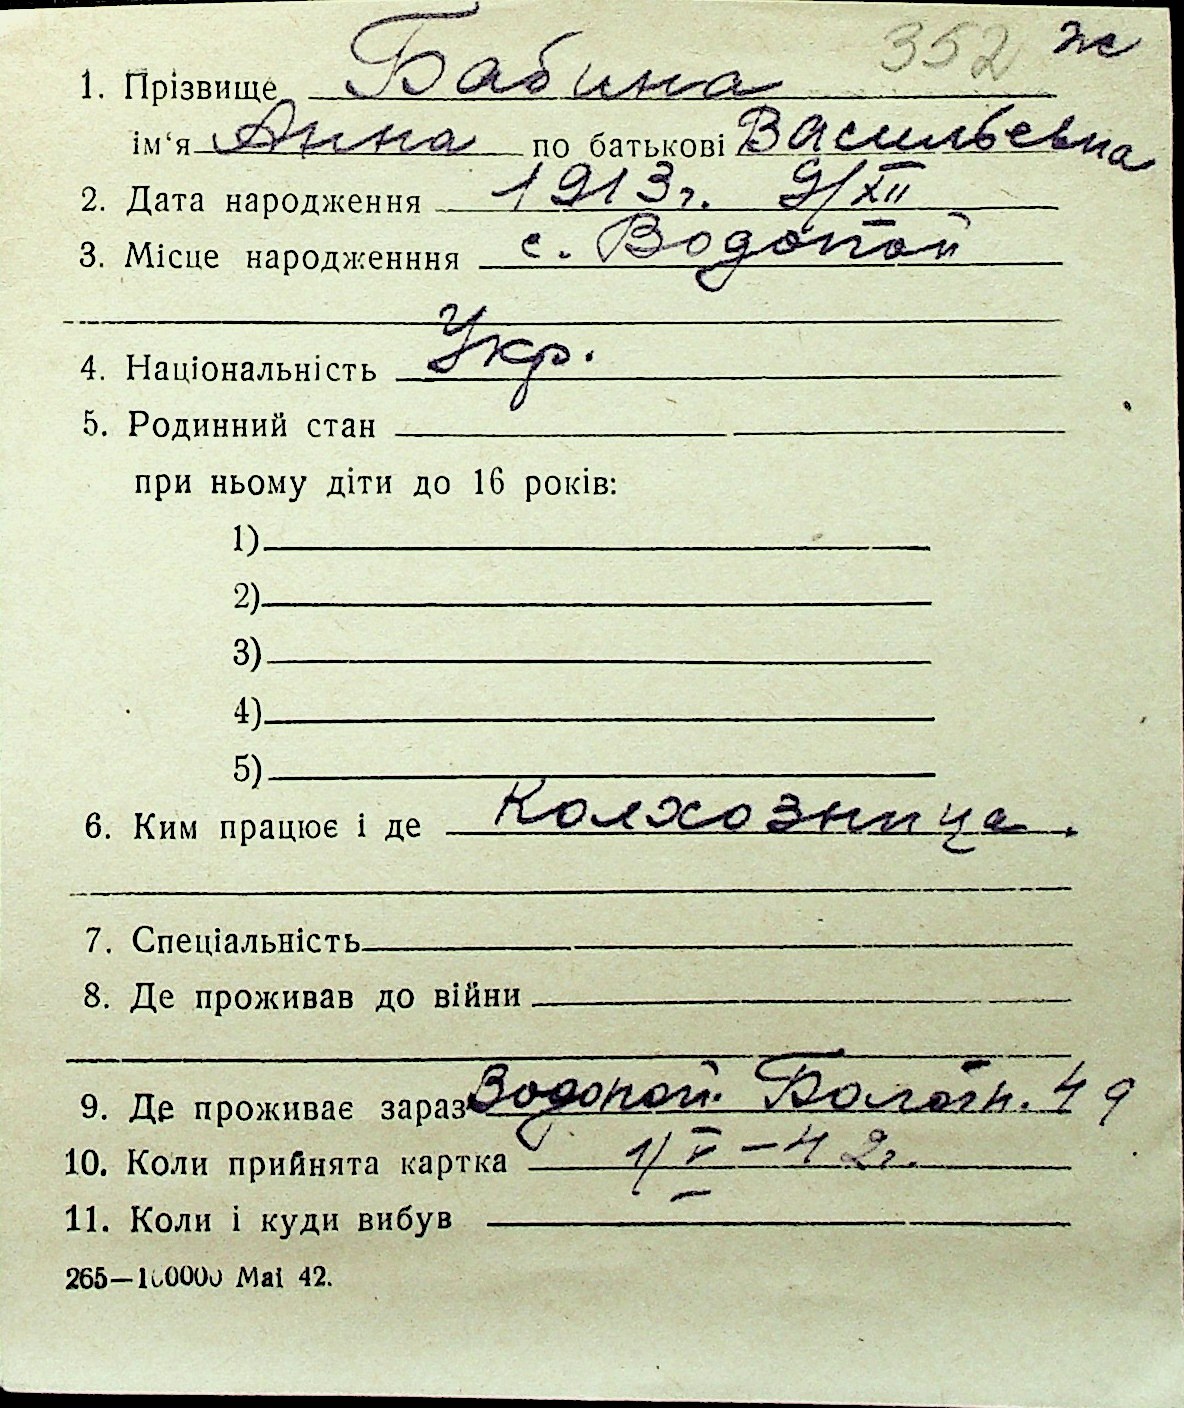 352 ж
1. Прізвище Бабина
ім‘я Анна по батькові Васильевна
2. Дата народження 1913 г. 9/XII
3. Місце народженння с. Водопой
4. Національність Укр.
5. Родинний стан
при ньому діти до 16 років:
1)
2)
3)
4)
5)
6. Ким працює і де Колхозница.
7. Спеціальність
8. Де проживав до війни
9. Де проживає зараз Водопой. Болотн. 49
10. Коли прийнята картка 1/V – 42 г.
11. Коли і куди вибув
265—100000 Mai 42.